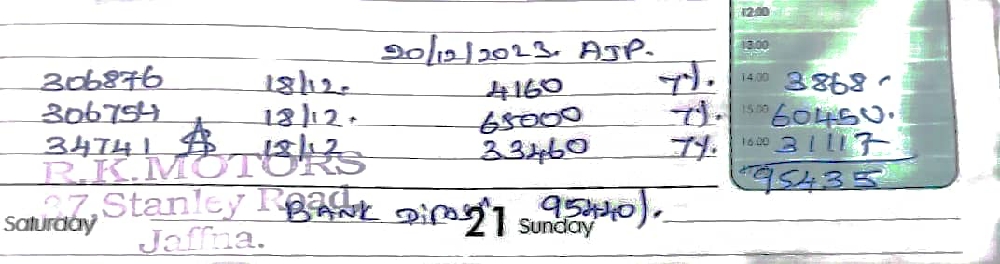 12.00
20/12/2023. AJP.
13.00
306876 18/12. 4160 7%. 14.00 3868.
306754 18/12. 65000 7%. 15.00 60450.
34741 A 18/12 33460 7%. 16.00 31117
R.K.MOTORS 95435
37, Stanley Road, BANK 95440/.
Saturday 21 Sunday
Jaffna.